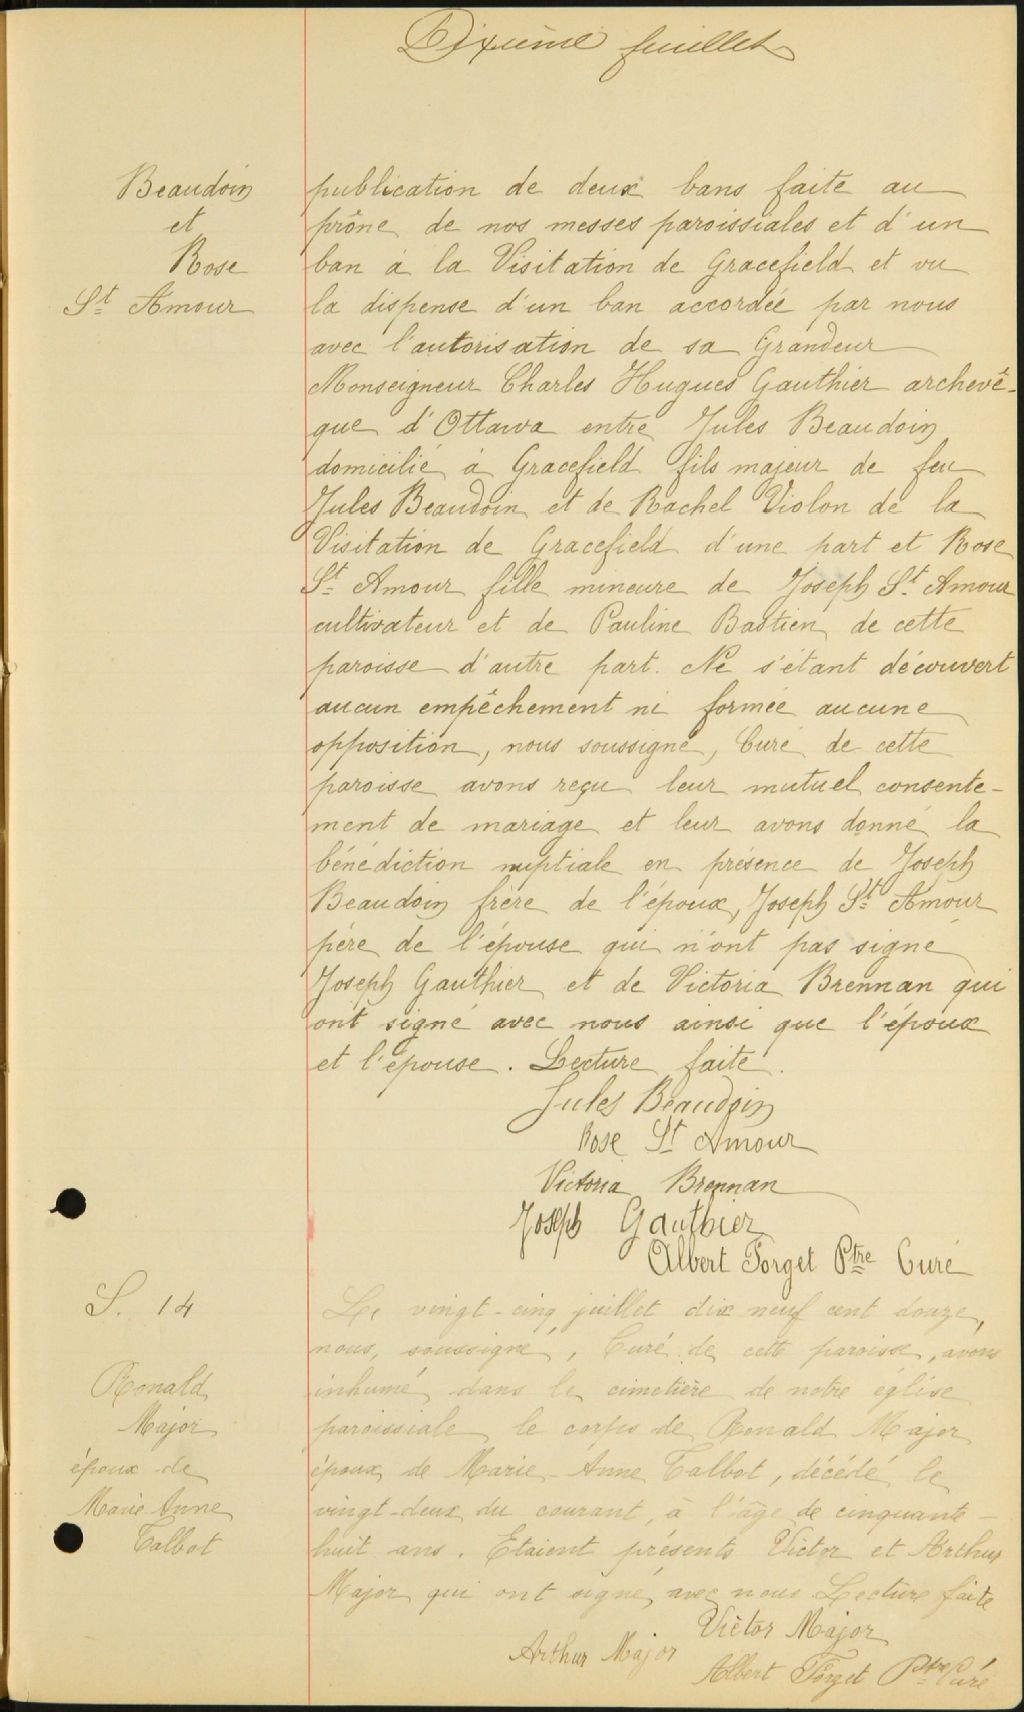 Dixième feuillet
Beaudoin
et
Rose
St Amour
publication de deux bans faite au
prône de nos messes paroissiales et d'un
ban à la Visitation de Gracefield et vu
la dispense d'un ban accordée par nous
avec l'autorisation de sa Grandeur
Monseigneur Charles Hugues Gauthier archevê-
que d'Ottawa entre Jules Beaudoin
domicilié à Gracefield fils majeur de feu
Jules Beaudoin et de Rachel Violon de la
Visitation de Gracefield d'une part et Rose
St Amour fille mineure de Joseph St Amour
cultivateur et de Pauline Bastien de cette
paroisse d'autre part. Ne s'étant découvert
aucun empêchement ni formée aucune
opposition, nous soussigné, Curé de cette
paroisse avons reçu leur mutuel consente-
ment de mariage et leur avons donné la
bénédiction nuptiale en présence de Joseph
Beaudoin frère de l'époux, Joseph St Amour
père de l'épouse qui n'ont pas signé
Joseph Gauthier et de Victoria Brennan qui
ont signé avec nous ainsi que l'époux
et l'épouse. Lecture faite.
Jules Beaudoin
Rose St Amour
Victoria Brennan
Joseph Gauthier
Albert Forget Ptre Curé
S. 14
Ronald
Major
époux de
Marie-Anne
Talbot
Le vingt-cinq juillet dix neuf cent douze,
nous, soussigné, Curé de cette paroisse, avons
inhumé dans le cimetière de notre église
paroissiale le corps de Ronald Major
époux de Marie-Anne Talbot, décédé le
vingt-deux du courant, à l'âge de cinquante-
huit ans. Etaient présents Victor et Arthur
Major qui ont signé avec nous Lecture faite
Victor Major
Arthur Major
Albert Forget Ptre Curé